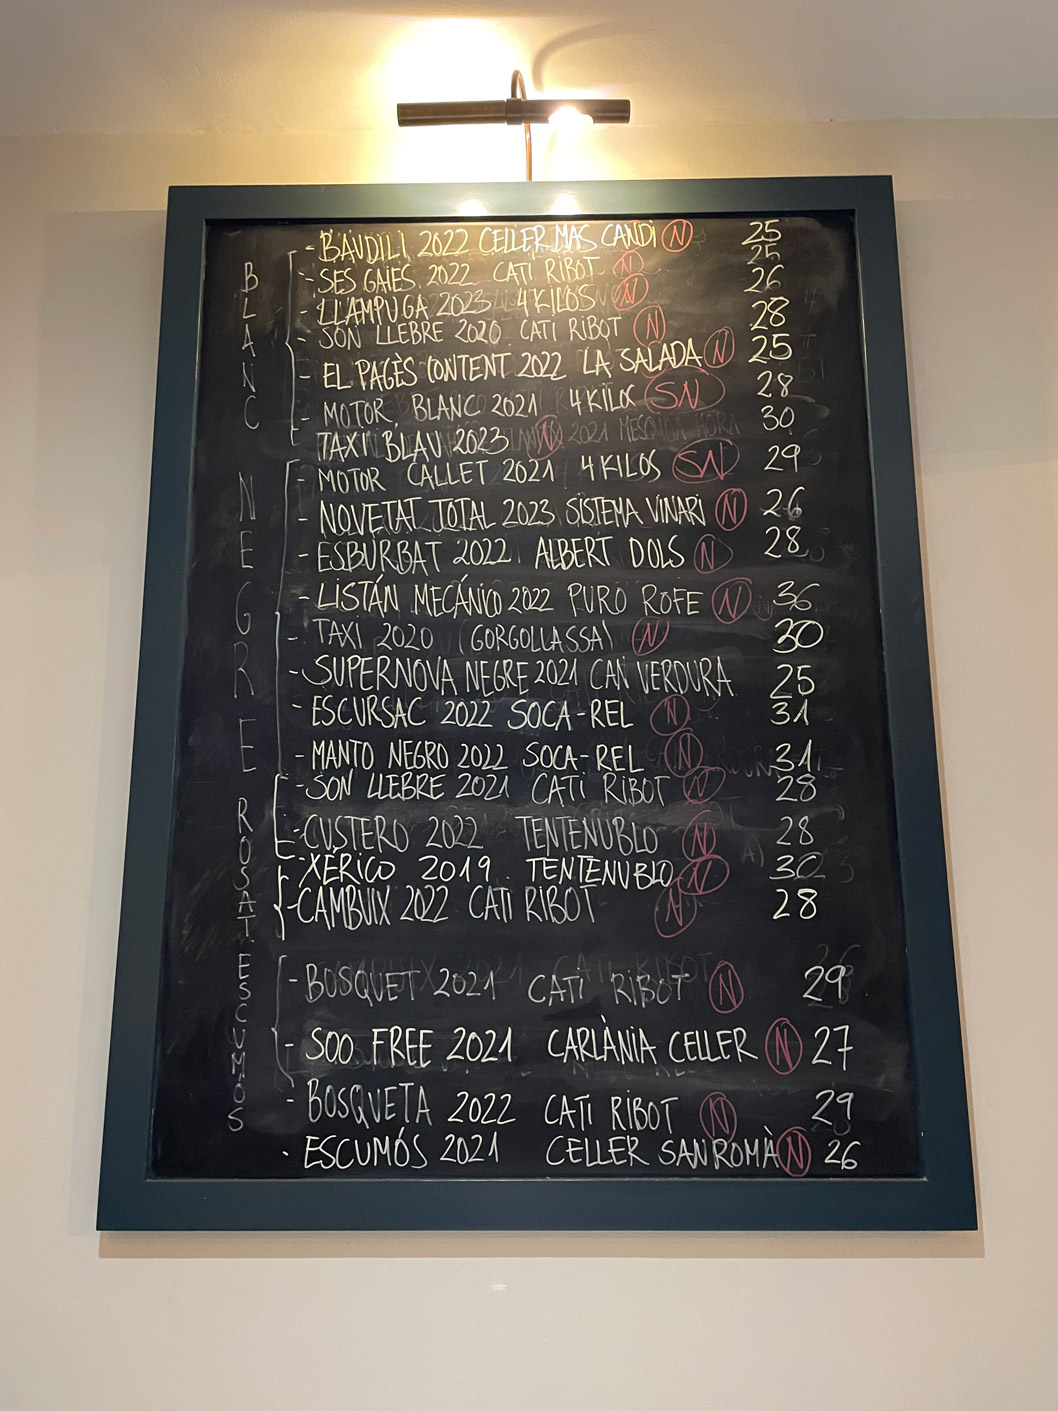 BLANC
- BAUDILI 2022 CELLER MAS CANDÍ N 25
- SES GAIES 2022 CATI RIBOT N 25
- LLAMPUGA 2023 4KILOS N 26
- SON LLEBRE 2020 CATI RIBOT N 28
- EL PAGÈS CONTENT 2022 LA SALADA N 25
- MOTOR BLANC 2021 4KILOS SN 28
TAXI BLAU 2023 N 30
NEGRE
- MOTOR CALLET 2021 4KILOS SN 29
- NOVETAT TOTAL 2023 SISTEMA VINARI N 26
- ESBURBAT 2022 ALBERT DOLS N 28
- LISTÁN MECÁNICO 2022 PURO ROFE N 36
- TAXI 2020 (GORGOLLASSA) N 30
- SUPERNOVA NEGRE 2021 CAN VERDURA 25
- ESCURSAC 2022 SOCA-REL N 31
- MANTO NEGRO 2022 SOCA-REL N 31
ROSAT
- SON LLEBRE 2021 CATI RIBOT N 28
- CUSTERO 2022 TENTENUBLO N 28
- XÉRICO 2019 TENTENUBLO N 30
- CAMBUIX 2022 CATI RIBOT N 28
ESCUMOS
- BOSQUET 2021 CATI RIBOT N 29
- SOO FREE 2021 CARLÀNIA CELLER N 27
- BOSQUETA 2022 CATI RIBOT N 29
- ESCUMÓS 2021 CELLER SANROMÀ N 26